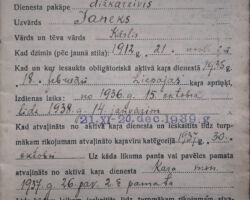 Dienesta pakāpe dižkareivis
Uzvārds Janeks
Vārds un tēva vārds Kārlis
Kad dzimis (pēc jaunā stila) 1912 g. 21.
Kad un kur iesaukts obligātoriskā aktīvā kaŗa dienestā 1935 g.
18. februārī Liepājas kaŗa apriņķī,
Izdienas laiks: no 1936. g. 15. oktobra
līdz 1938. g. 14. janvārim
(21.XI-20.dec.1939.g.
Kad atvaļināts no aktīvā kaŗa dienesta un ieskaitīts līdz turpmākam rīkojumam atvaļināto kaŗavīru kategorijā 1937 g. 30.
oktobrī Uz kāda likuma panta vai pavēles pamata
atvaļināts no aktīvā kaŗa dienesta Kara min.
1937. g. 26. pav. 2. § pamata
Kad atvaļināts no aktīvā kaŗa dienesta un ieskaitīts līdz tur-